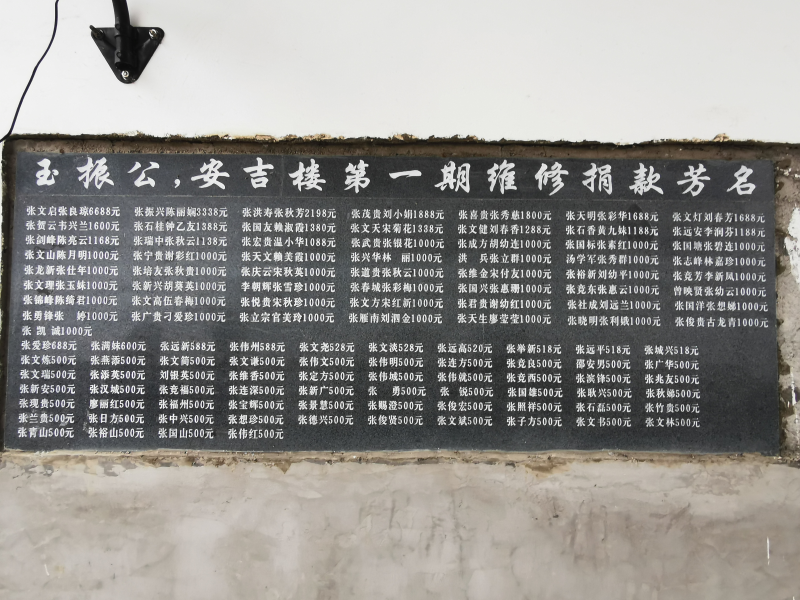 玉振公,安吉楼第一期维修捐款芳名
张文启张良琼6688元 张振兴陈丽娴3338元 张洪寿张秋芳2198元 张茂贵刘小娟1888元 张喜贵张秀慈1800元 张天明张彩华1688元 张文灯刘春芳1688元
张贺云韦兴兰1600元 张石桂钟乙友1388元 张国友赖淑霞1380元 张文天宋菊花1338元 张文健刘春香1288元 张石香黄九妹1188元 张远安李润芬1188元
张剑峰陈亮云1168元 张瑞中张秋云1138元 张宏贵温小华1088元 张武贵张银花1000元 张成方胡幼连1000元 张国标张素红1000元 张国塘张碧连1000元
张文山陈月明1000元 张宁贵谢彩红1000元 张天文赖美霞1000元 张兴华林 丽1000元 洪 兵张立群1000元 汤学军张秀群1000元 张志峰林嘉珍1000元
张龙新张仕年1000元 张培友张秋贵1000元 张庆云宋秋英1000元 张道贵张秋云1000元 张维金宋付友1000元 张裕新刘幼平1000元 张竞芳李新凤1000元
张文理张玉妹1000元 张新兴胡葵英1000元 李朝辉张雪珍1000元 张春城张彩梅1000元 张国兴张惠珊1000元 张竞东张惠云1000元 曾映贤张幼云1000元
张锦峰陈绮君1000元 张文高伍春梅1000元 张悦贵宋秋珍1000元 张文方宋红新1000元 张君贵谢幼红1000元 张社成刘远兰1000元 张国洋张想娣1000元
张勇锋张 婷1000元 张广贵刁爱珍1000元 张立宗官美玲1000元 张雁南刘泗金1000元 张天生廖莹莹1000元 张晓明张利娥1000元 张俊贵古龙青1000元
张 凯 诚1000元
张爱珍688元 张满妹600元 张远新588元 张伟州588元 张文尧528元 张文淡528元 张远高520元 张举新518元 张远平518元 张城兴518元
张文炼500元 张燕添500元 张文简500元 张文谦500元 张伟文500元 张伟明500元 张连方500元 张竞良500元 邵安男500元 张广华500元
张文瑞500元 张添英500元 刘银英500元 张维香500元 张定方500元 张伟城500元 张伟就500元 张竞西500元 张滨锋500元 张兆友500元
张新安500元 张汉城500元 张竞福500元 张连深500元 张新广500元 张 勇500元 张 锐500元 张国雄500元 张耿兴500元 张秋娣500元
张现贵500元 廖丽红500元 张福州500元 张宝辉500元 张景慧500元 张赐澄500元 张俊宏500元 张照祥500元 张石磊500元 张竹贵500元
张兰贵500元 张日方500元 张中兴500元 张想珍500元 张德兴500元 张俊贤500元 张文斌500元 张子方500元 张文书500元 张文林500元
张青山500元 张裕山500元 张国山500元 张伟红500元